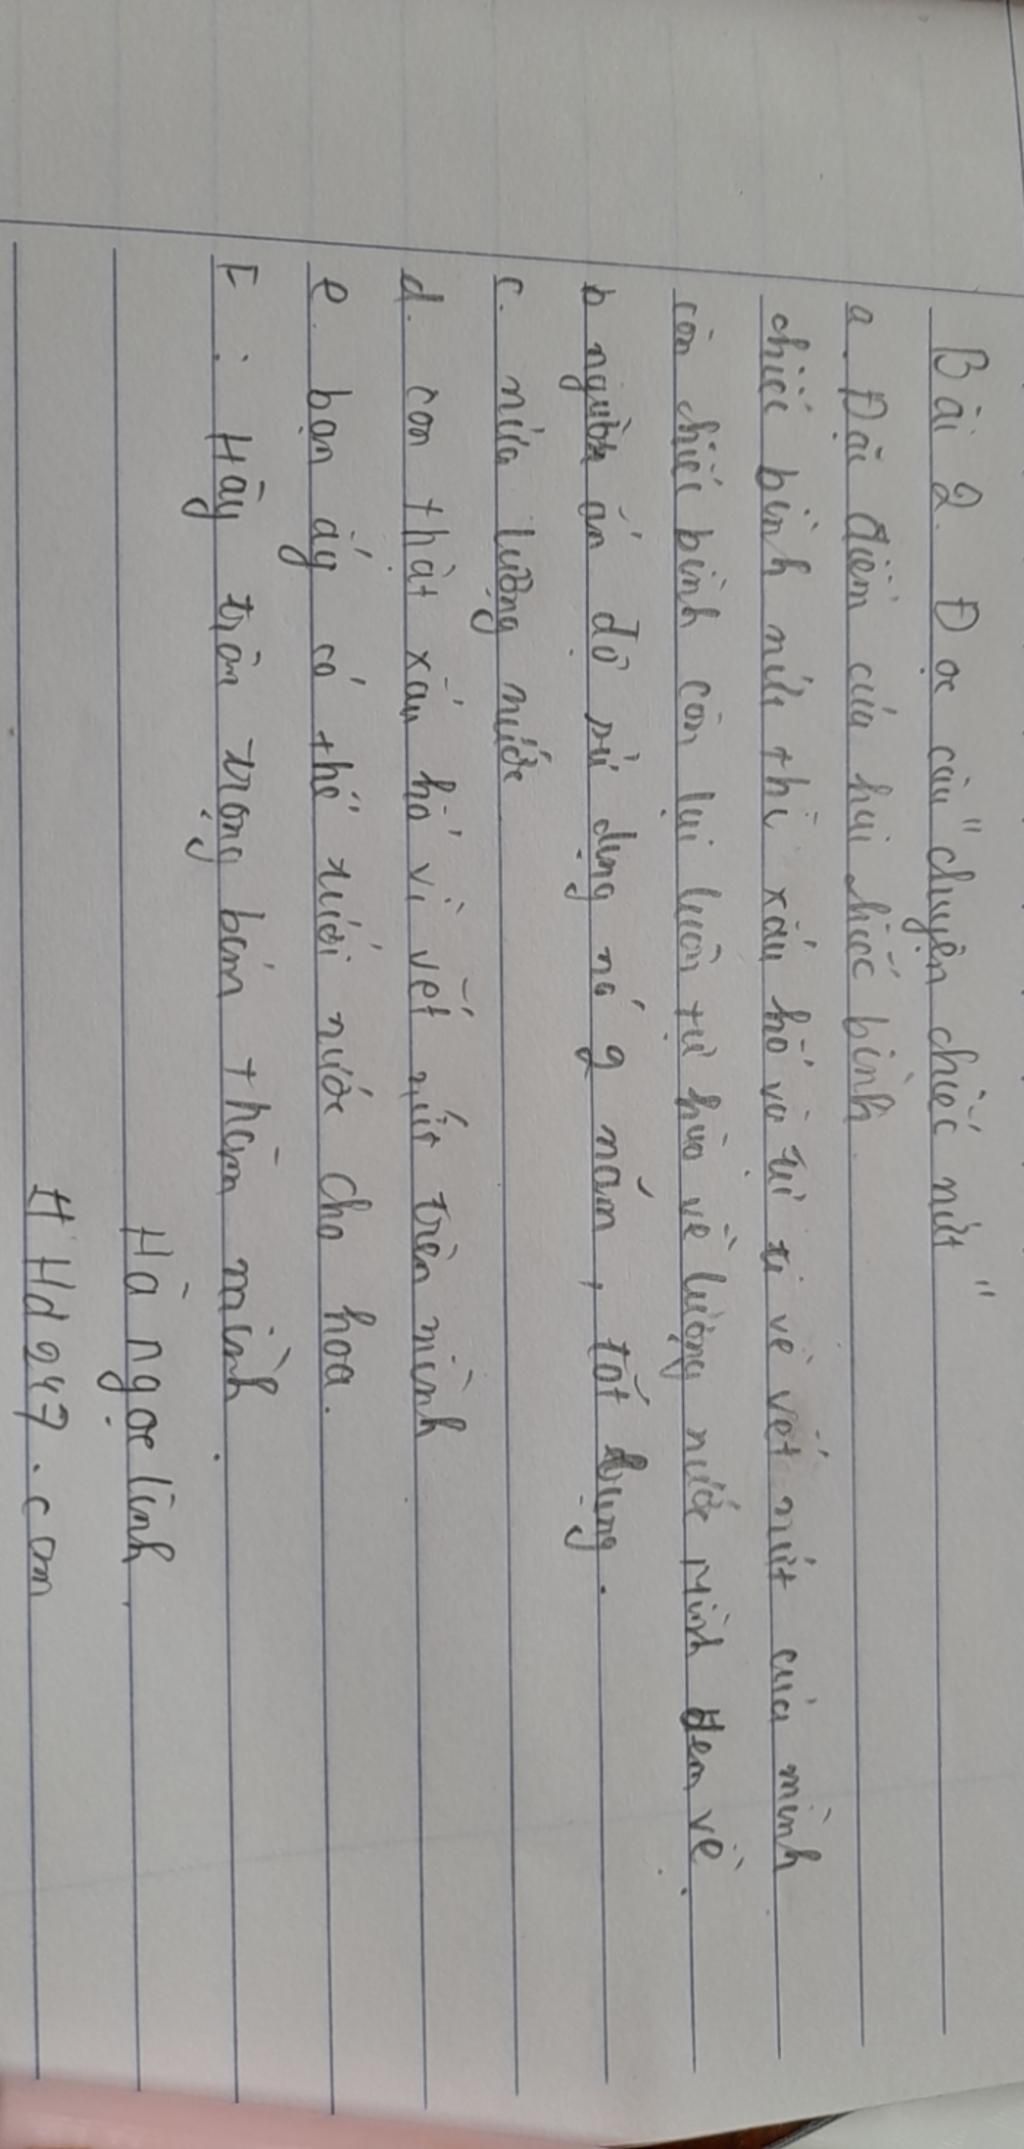 Bài 2. Đọc câu "chuyện chiếc nứt"
a. Đặc điểm của hai chiếc bình
chiếc bình nứt thì xấu hổ và tự ti về vết nứt của mình
còn chiếc bình còn lại luôn tự hào về lượng nước mình đem về.
b người ấn độ sử dụng nó 2 năm, tốt bụng.
c. nửa lượng nước
d. con thật xấu hổ vì vết nứt trên mình
e. bạn ấy có thể tưới nước cho hoa.
F: Hãy trân trọng bản thân mình.
Hà ngọc linh
H Hd 247.com